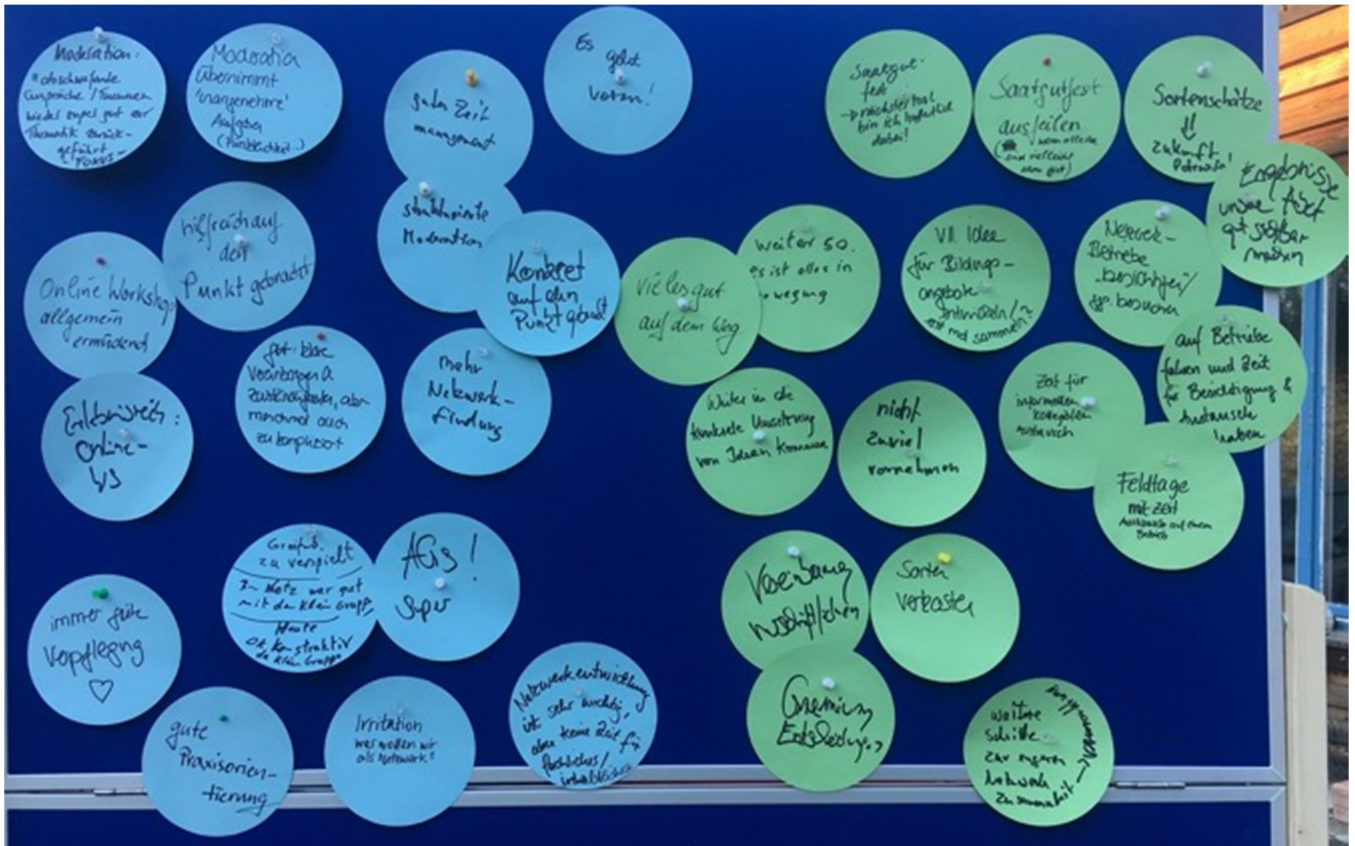 Moderation:
abschweifende
Gespräche / Themen
wieder super gut zur
Thematik zurück-
geführt
- FOKUS -
Moderation
übernimmt
"unangenehme"
Aufgaben
(Pünktlichkeit..)
gutes Zeit
management
Es
geht
voran!
strukturierte
Moderation
Konkret
auf den
Punkt gebracht
hilfreich auf
den
Punkt gebracht
Online Workshops
allgemein
ermüdend
Online-
WS
gut: klare
Vereinbarungen &
Zuständigkeiten, aber
manchmal auch
zu kompliziert
mehr
Netzwerk-
findung
Greifsw.
zu verspielt
war gut
mit der klein Gruppe
Heute
Ok, konstruktiv
de klein Gruppe
AGs!
super
immer gute
Verpflegung
♡
gute
Praxisorien-
tierung
Irritation
was wollen wir
als Netzwerk?
Netzwerkentwicklung
ist sehr wichtig,
aber keine Zeit für
fachliches/
inhaltliches
Saatgut-
fest
→ nächstes Mal
bin ich hoffentlich
dabei!
Saatgutfest
ausfeilen
Sortenschätze
⇓
Zukunft
Ergebnisse
unsere Arbeit
gut sichtbar
machen
vieles gut
auf dem Weg
weiter so.
es ist alles in
Bewegung
Vll. Idee
für Bildungs-
angebote
entwickeln/
erst mal sammeln?
Netzwerk-
Betriebe
besichtigen/
ggf. besuchen
auf Betriebe
fahren und Zeit
für Besichtigung &
Austausch
haben
Weiter in die
konkrete Umsetzung
von Ideen kommen
nicht
zuviel
vornehmen
Zeit für
informellen
kollegialen
Austausch
Feldtage
mit Zeit
Austausch auf einem
Betrieb
Sorten
verkosten
weitere
Schritte
zur engeren
Netzwerk
Zusammenarbeit